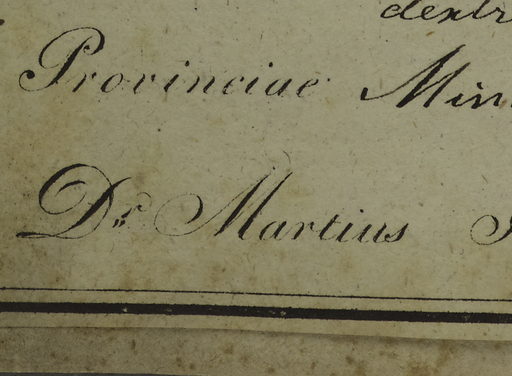 dextr
Provinciae Min
Dr. Martius